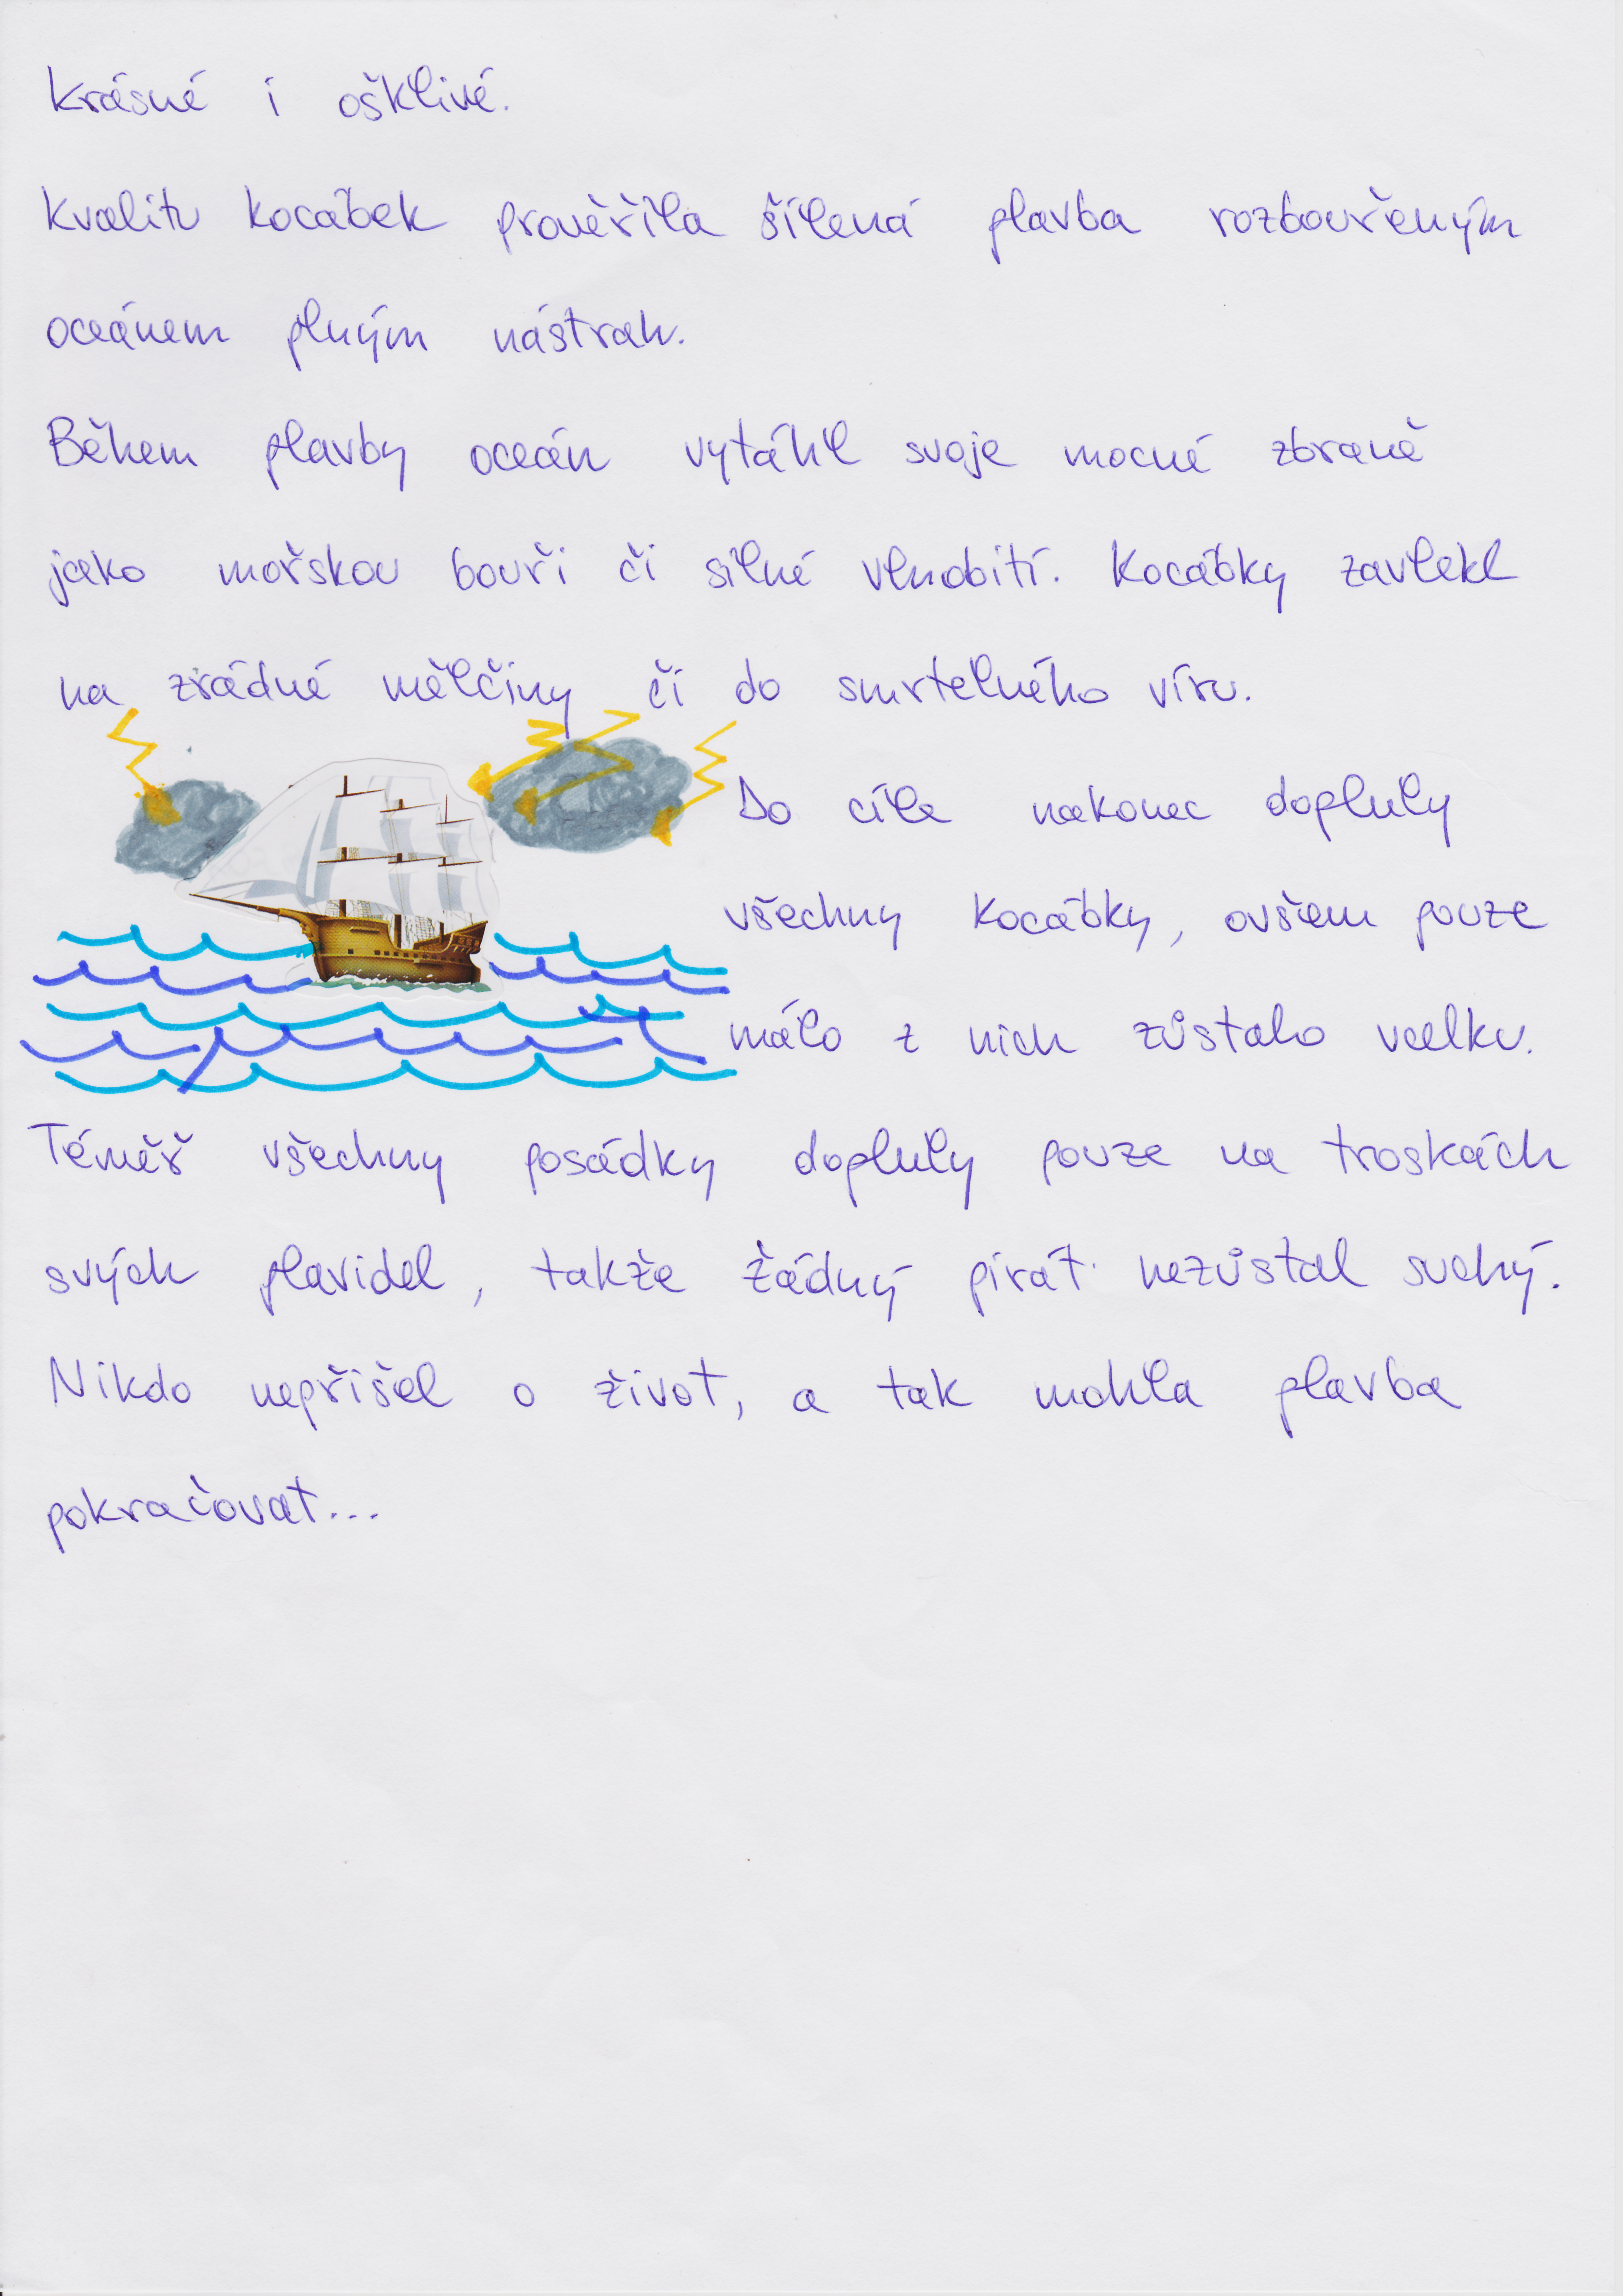 krásné i ošklivé.
Kvalitu kocábek prověřila šílená plavba rozbouřeným
oceánem plným nástrah.
Během plavby oceán vytáhl svoje mocné zbraně
jako mořskou bouři či silné vlnobití. Kocábky zavlekl
na zrádné mělčiny či do smrtelného víru.
Do cíle nakonec dopluly
všechny kocábky, ovšem pouze
málo z nich zůstalo vcelku.
Téměř všechny posádky dopluly pouze na troskách
svých plavidel, takže žádný pirát nezůstal suchý.
Nikdo nepřišel o život, a tak mohla plavba
pokračovat...